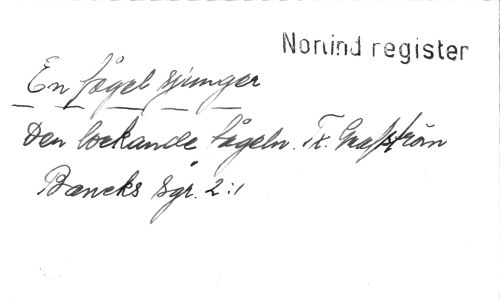 Norlind register
En fågel sjunger
Den lockande fågeln. Tx. Grafström
Baecks sgr. 2:1